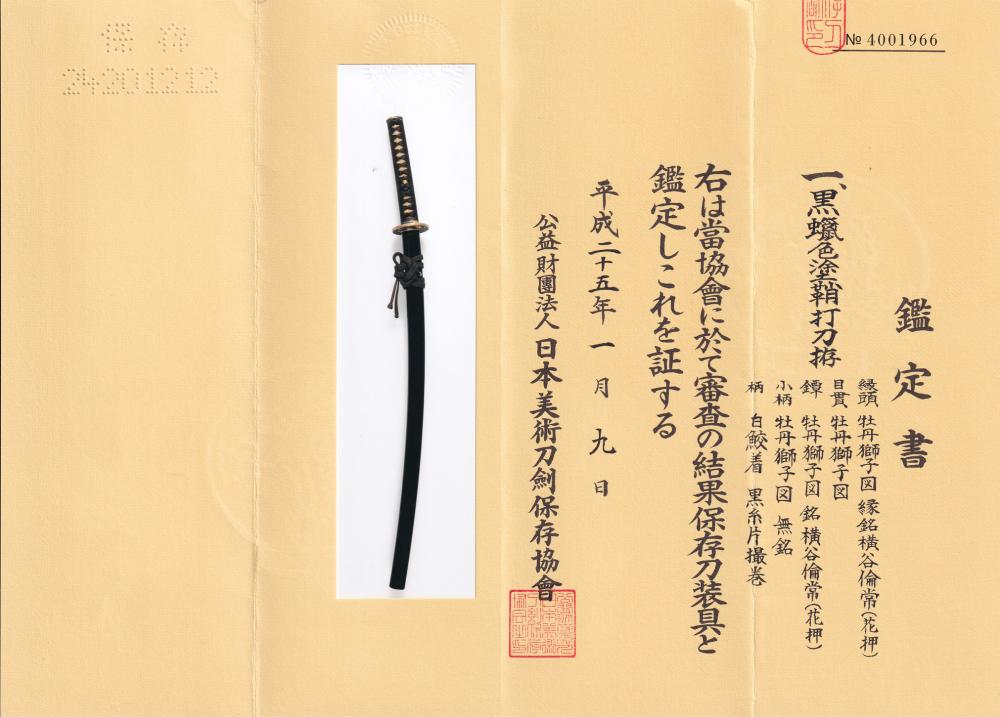 № 4001966
鑑定書
一、黒蠟色塗鞘打刀拵
縁頭 牡丹獅子図 縁銘 横谷倫常(花押)
目貫 牡丹獅子図
鐔 牡丹獅子図 銘 横谷倫常(花押)
小柄 牡丹獅子図 無銘
柄 白鮫着 黒糸片撮巻
右は當協會に於て審査の結果保存刀装具と
鑑定しこれを証する
平成二十五年一月九日
公益財團法人 日本美術刀劍保存協會
保存
24201212